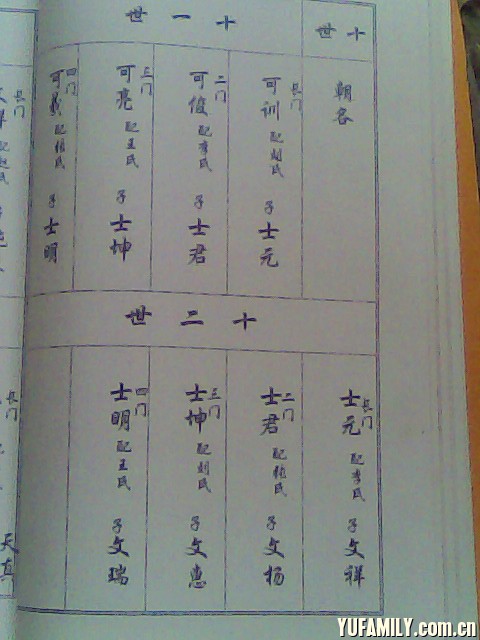 十世
朝容
十一世
长门
可训 配赵氏 子 士元
二门
可俊 配李氏 子 士君
三门
可亮 配王氏 子 士坤
四门
可义 配植氏 子 士明
十二世
长门
士元 配李氏 子 文祥
二门
士君 配植氏 子 文扬
三门
士坤 配刘氏 子 文惠
四门
士明 配王氏 子 文瑞
长门
天真
YUFAMILY.com.cn